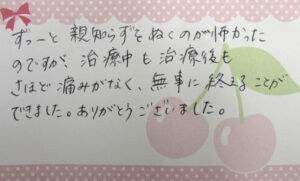 ずっーと 親知らずをぬくのが怖かった
のですが、治療中も治療後も
さほど痛みがなく、無事に終えることが
できました。ありがとうございました。